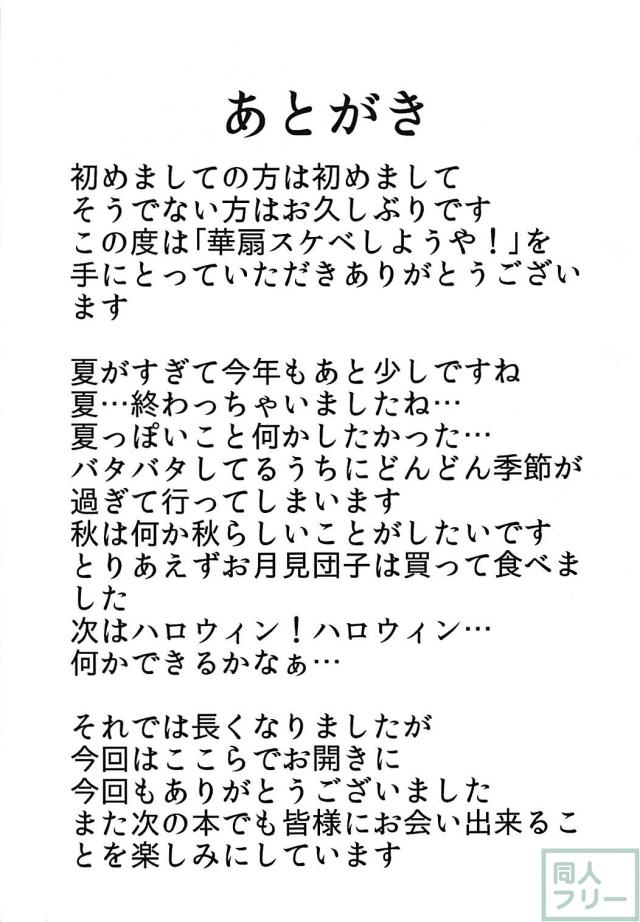 あとがき
初めましての方は初めまして
そうでない方はお久しぶりです
この度は「華扇スケベしようや！」を
手にとっていただきありがとうござい
ます
夏がすぎて今年もあと少しですね
夏…終わっちゃいましたね…
夏っぽいこと何かしたかった…
バタバタしてるうちにどんどん季節が
過ぎて行ってしまいます
秋は何か秋らしいことがしたいです
とりあえずお月見団子は買って食べま
した
次はハロウィン！ハロウィン…
何かできるかなぁ…
それでは長くなりましたが
今回はここらでお開きに
今回もありがとうございました
また次の本でも皆様にお会い出来るこ
とを楽しみにしています
同人
フリー